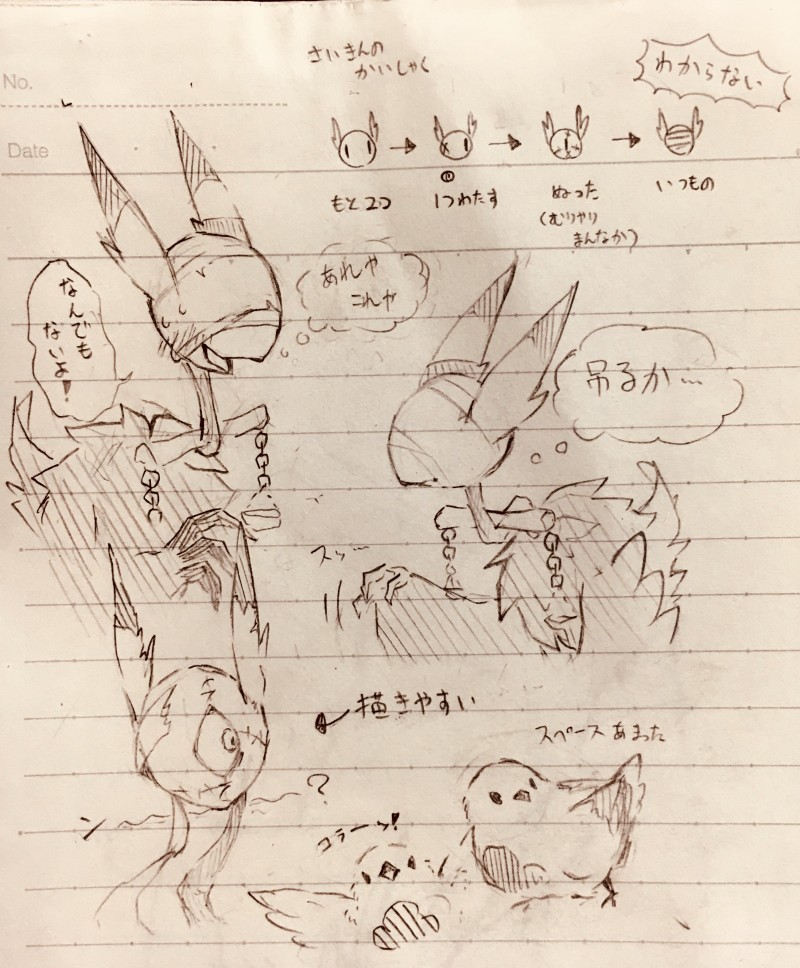 No.
Date
さいきんの
かいしゃく
わからない
もと2つ
1つわたす
ぬった
(むりやり
まんなか)
いつもの
なんでも
ないよ!
あれや
これや
吊るか…
スッ…
描きやすい
?
スペースあまった
コラーッ!